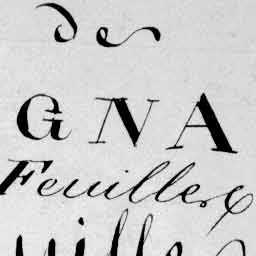 de
GNA
Feuilles
uille